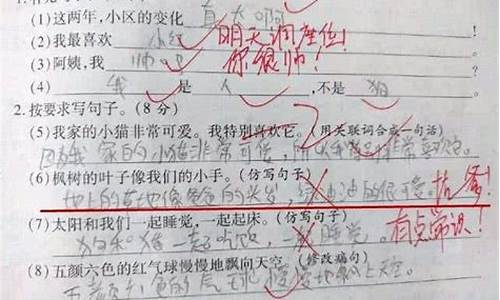 (1)这两年,小区的变化 真大啊
(2)我最喜欢 小红 明天调座位!
(3)阿姨,我 帅吗 你很帅!
(4) 我 是 人 ,不是 狼
2.按要求写句子。(8 分)
(5)我家的小猫非常可爱。我特别喜欢它。(用关联词合成一句话)
因为我家的小猫非常可爱,所以我特别非常喜欢它。
(6)枫树的叶子像我们的小手。(仿写句子)
地上的草地像爸爸的头发,绿油油的很可爱。抗争!
(7)太阳和我们一起睡觉,一起起床。(仿写句子)
狗和猪一起吃饭,一起睡觉。 有点常识!
(8)五颜六色的红气球慢慢地飘向天空。(修改病句)
五颜六色的气球慢慢地飘上天空。